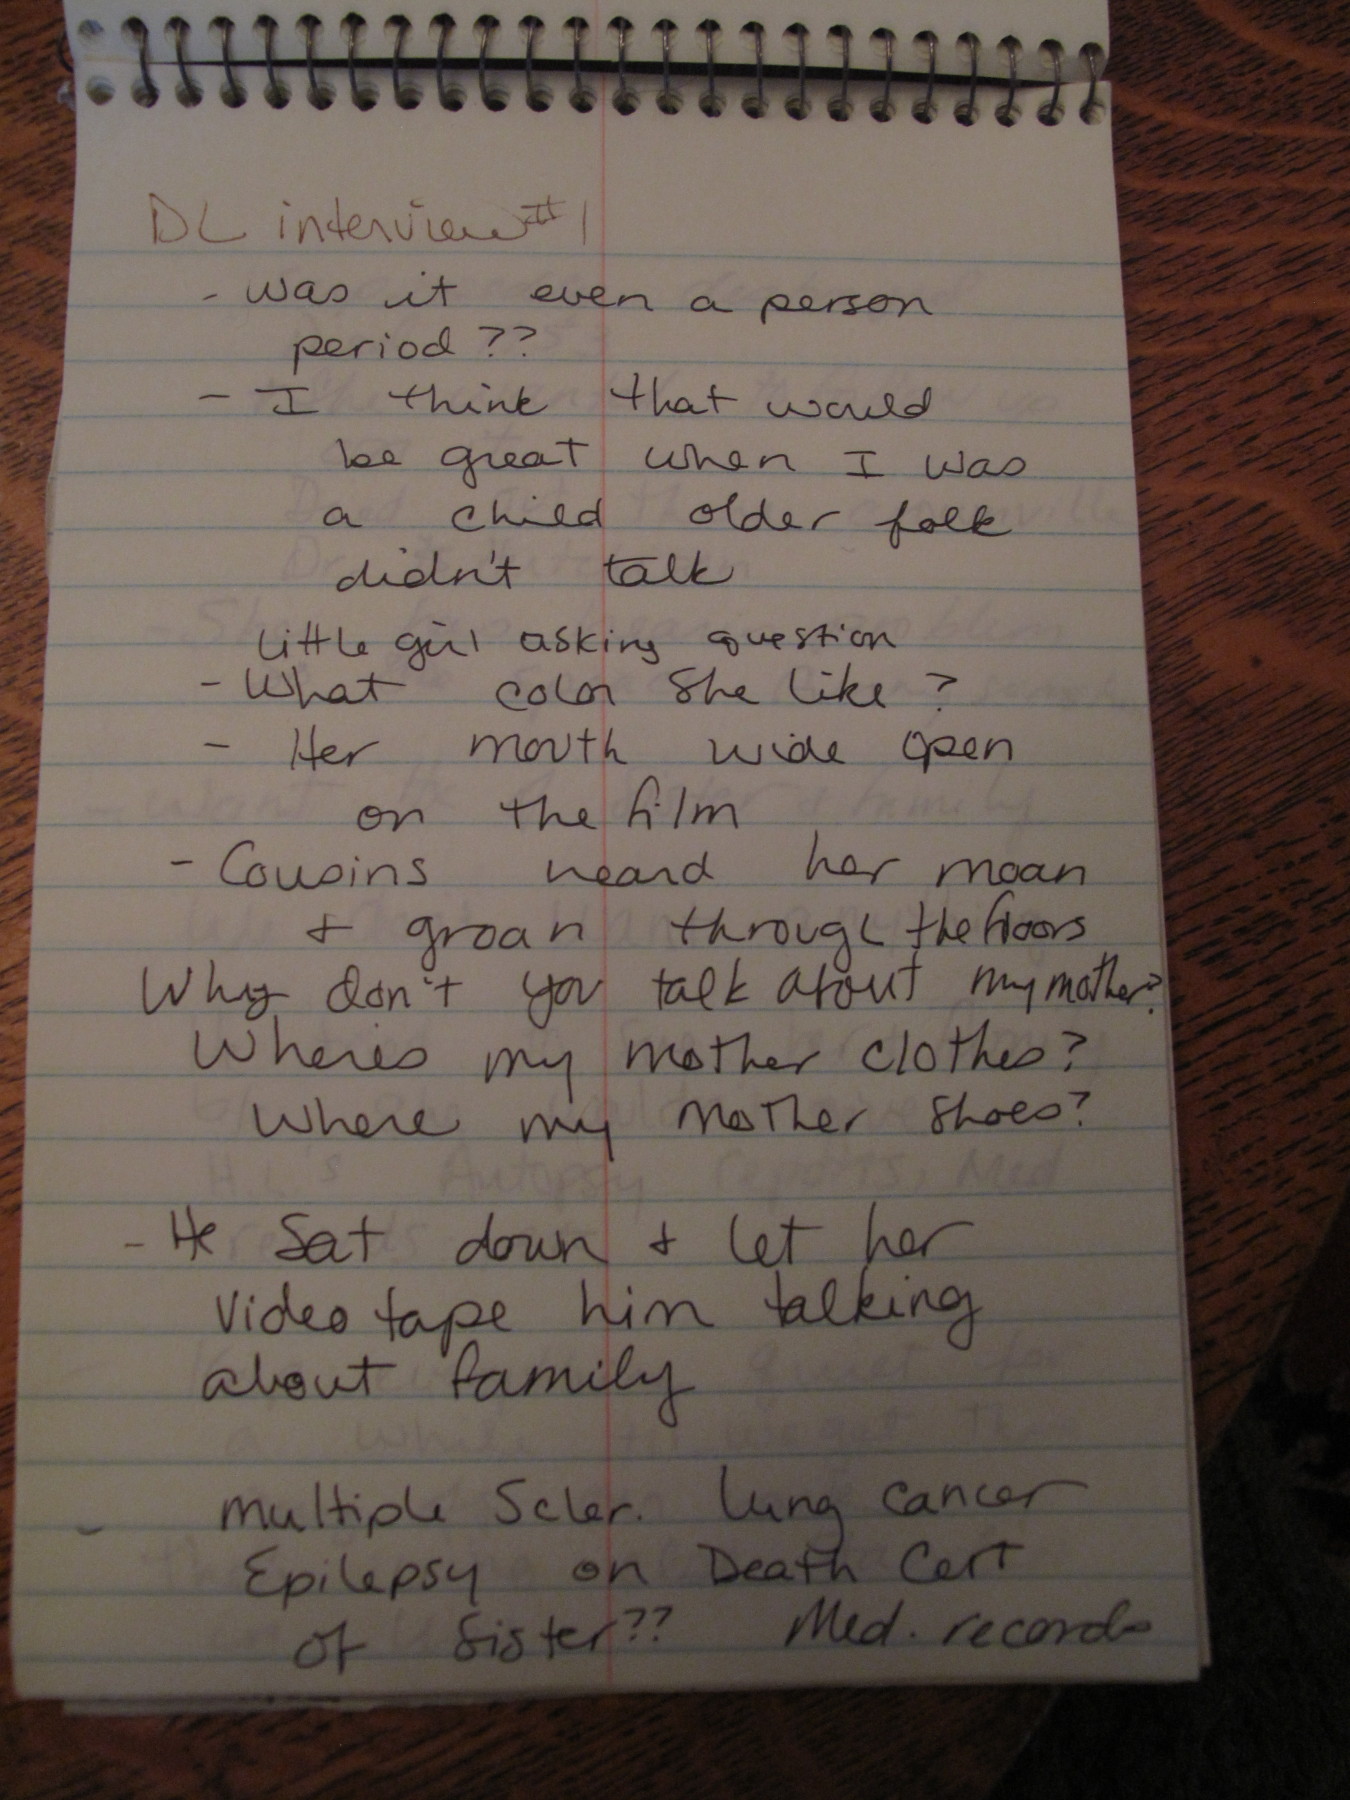 DL interview #1
- was it even a person
period??
- I think that would
be great when I was
a child older folk
didn't talk
little girl asking question
- What color she like?
- Her mouth wide open
on the film
- Cousins heard her moan
+ groan through the floors
Why don't you talk about my mother?
Wheres my mother clothes?
Where my mother shoes?
- He sat down + let her
video tape him talking
about family
- multiple Scler. lung cancer
Epilepsy on Death Cert
of sister?? Med. records